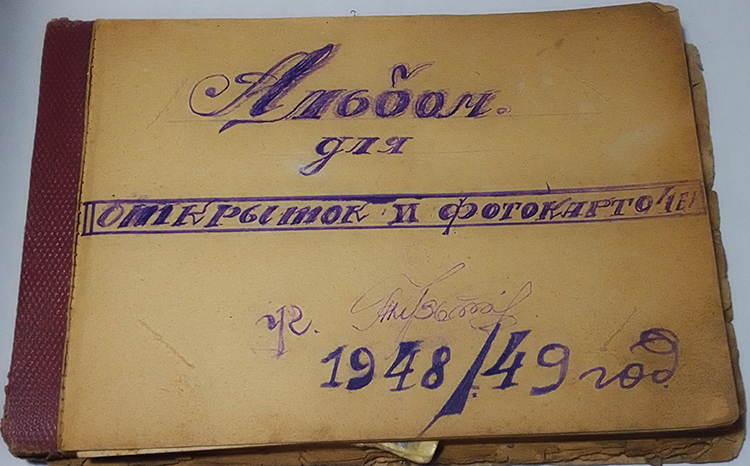 Альбом.
для
открыток и фотокарточе
1948/49 год